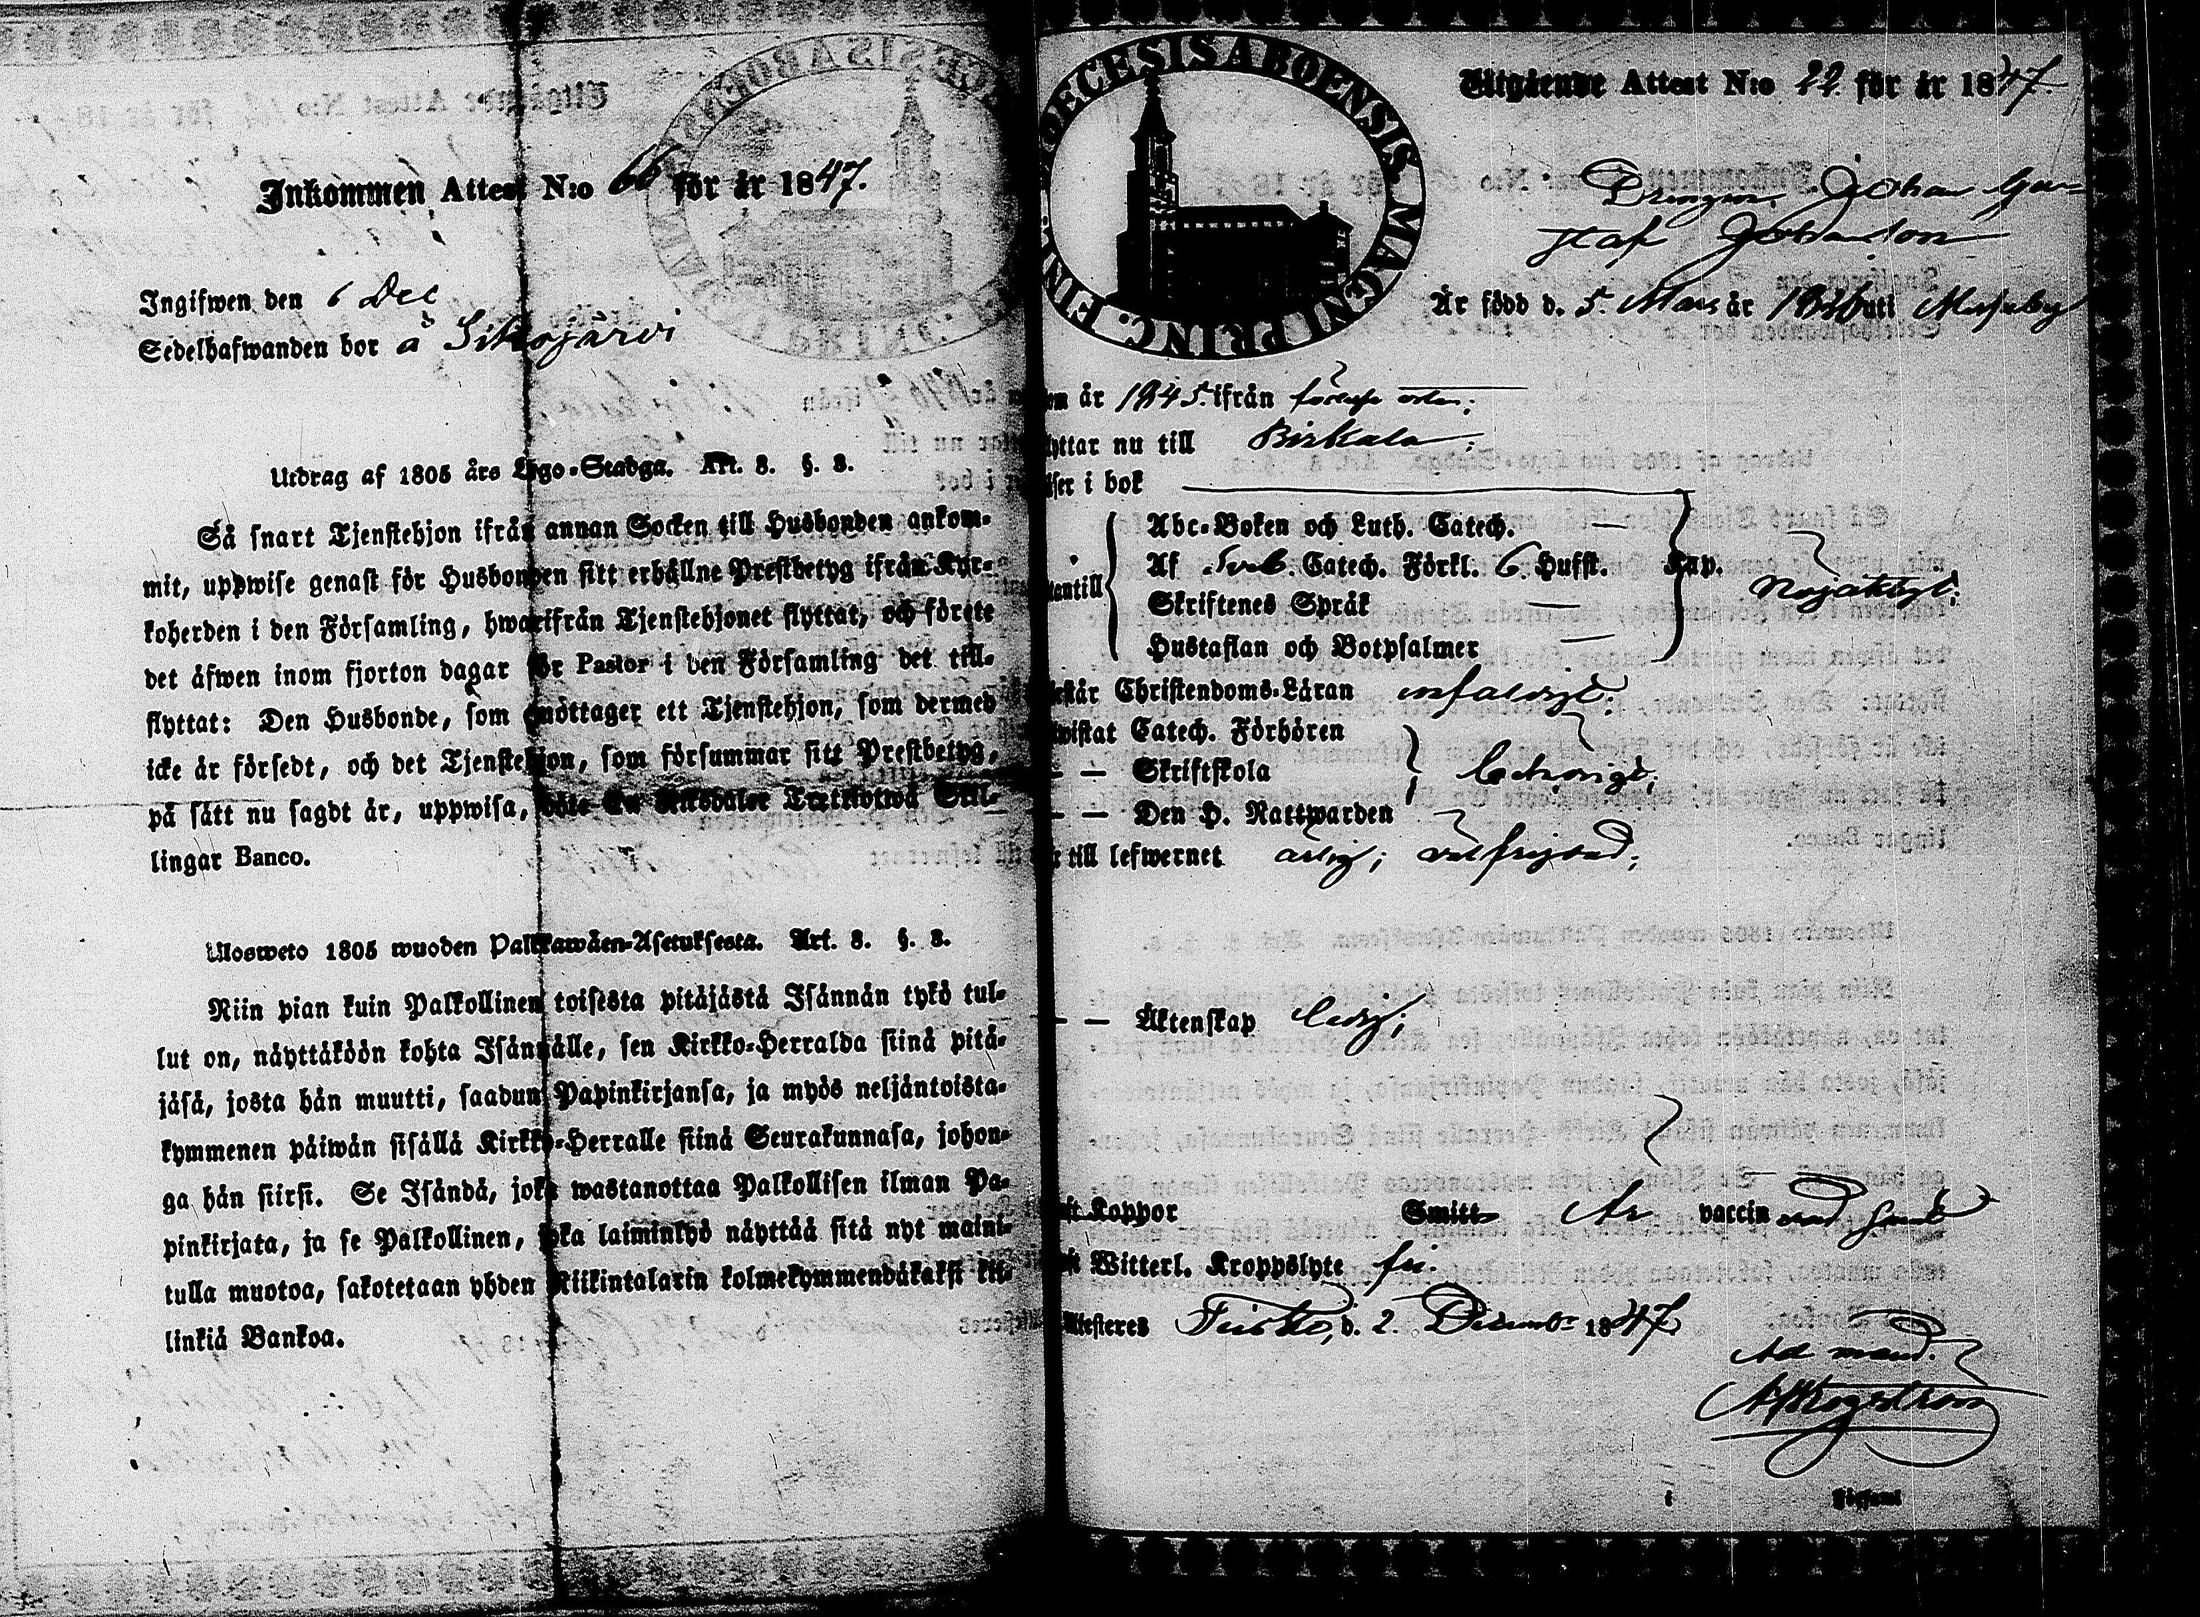 Inkommen Attest N:o 66 för år 1847.
Ingifwen den 6 Dec
Sedelhafwanden bor å Siknojärvi
Utdrag af 1805 års Lego-Stadga. Art. 8. §. 3.
Så snart Tjenstehjon ifrån annan Socken till Husbonden ankom-
mit, uppwise genast för Husbonden sitt erhållne Prestbetyg ifrån Kyr-
koherden i den Församling, hwarifrån Tjenstehjonet flyttat, och förete
det äfwen inom fjorton dagar för Pastor i den Församling det till-
flyttat: Den Husbonde, som emottager ett Tjenstehjon, som dermed
icke är försedt, och det Tjenstehjon, som försummar sitt Prestbetyg,
på sätt nu sagdt är, uppwisa, böte En Riksdaler Trettiotwå Skil-
lingar Banco.
Ulosweto 1805 wuoden Palkkawäen-Asetuksesta. Art. 8. §. 3.
Niin pian kuin Palkollinen toisesta pitäjästä Isännän tykö tul-
lut on, näyttäköön kohta Isännälle, sen Kirkko-Herralda siinä pitä-
jäsä, josta hän muutti, saadun Papinkirjansa, ja myös neljäntoista-
kymmenen päiwän sisällä Kirkko-Herralle siinä Seurakunnasa, johon-
ga hän siirsi. Se Isändä, joka wastanottaa Palkollisen ilman Pa-
pinkirjata, ja se Palkollinen, joka laiminlyö näyttää sitä nyt maini-
tulla muotoa, sakotetaan yhden Riikintalarin kolmekymmendäkaksi kil-
linkiä Bankoa.
DIOECESIS ABOENSIS MAGNI PRINC. FINL.
Utgående Attest N:o 22. för år 1847.
Drengen Johan Gu-
staf Johansson
Är född d. 5. Mars år 1826 uti
en år 1845. ifrån
lyttar nu till Birkala;
äser i bok
Abc-Boken och Luth. Catech. —
antill Af Sveb. Catech. Förkl. 6. Hufst. Kap. Nöjaktigt;
Skriftenes Språk —
Hustaflan och Botpsalmer —
står Christendoms-Läran enfaldigt;
wistat Catech. Förhören
— — Skriftskola behörigt;
— — Den H. Nattwarden
till lefwernet ärlig; välfrejdad;
— — Äktenskap ledig;
Koppor Smitt Är vaccinerad
Witterl. Kroppslyte fri.
Attesteres d. 2. Decemb: 1847.
Ad mand.